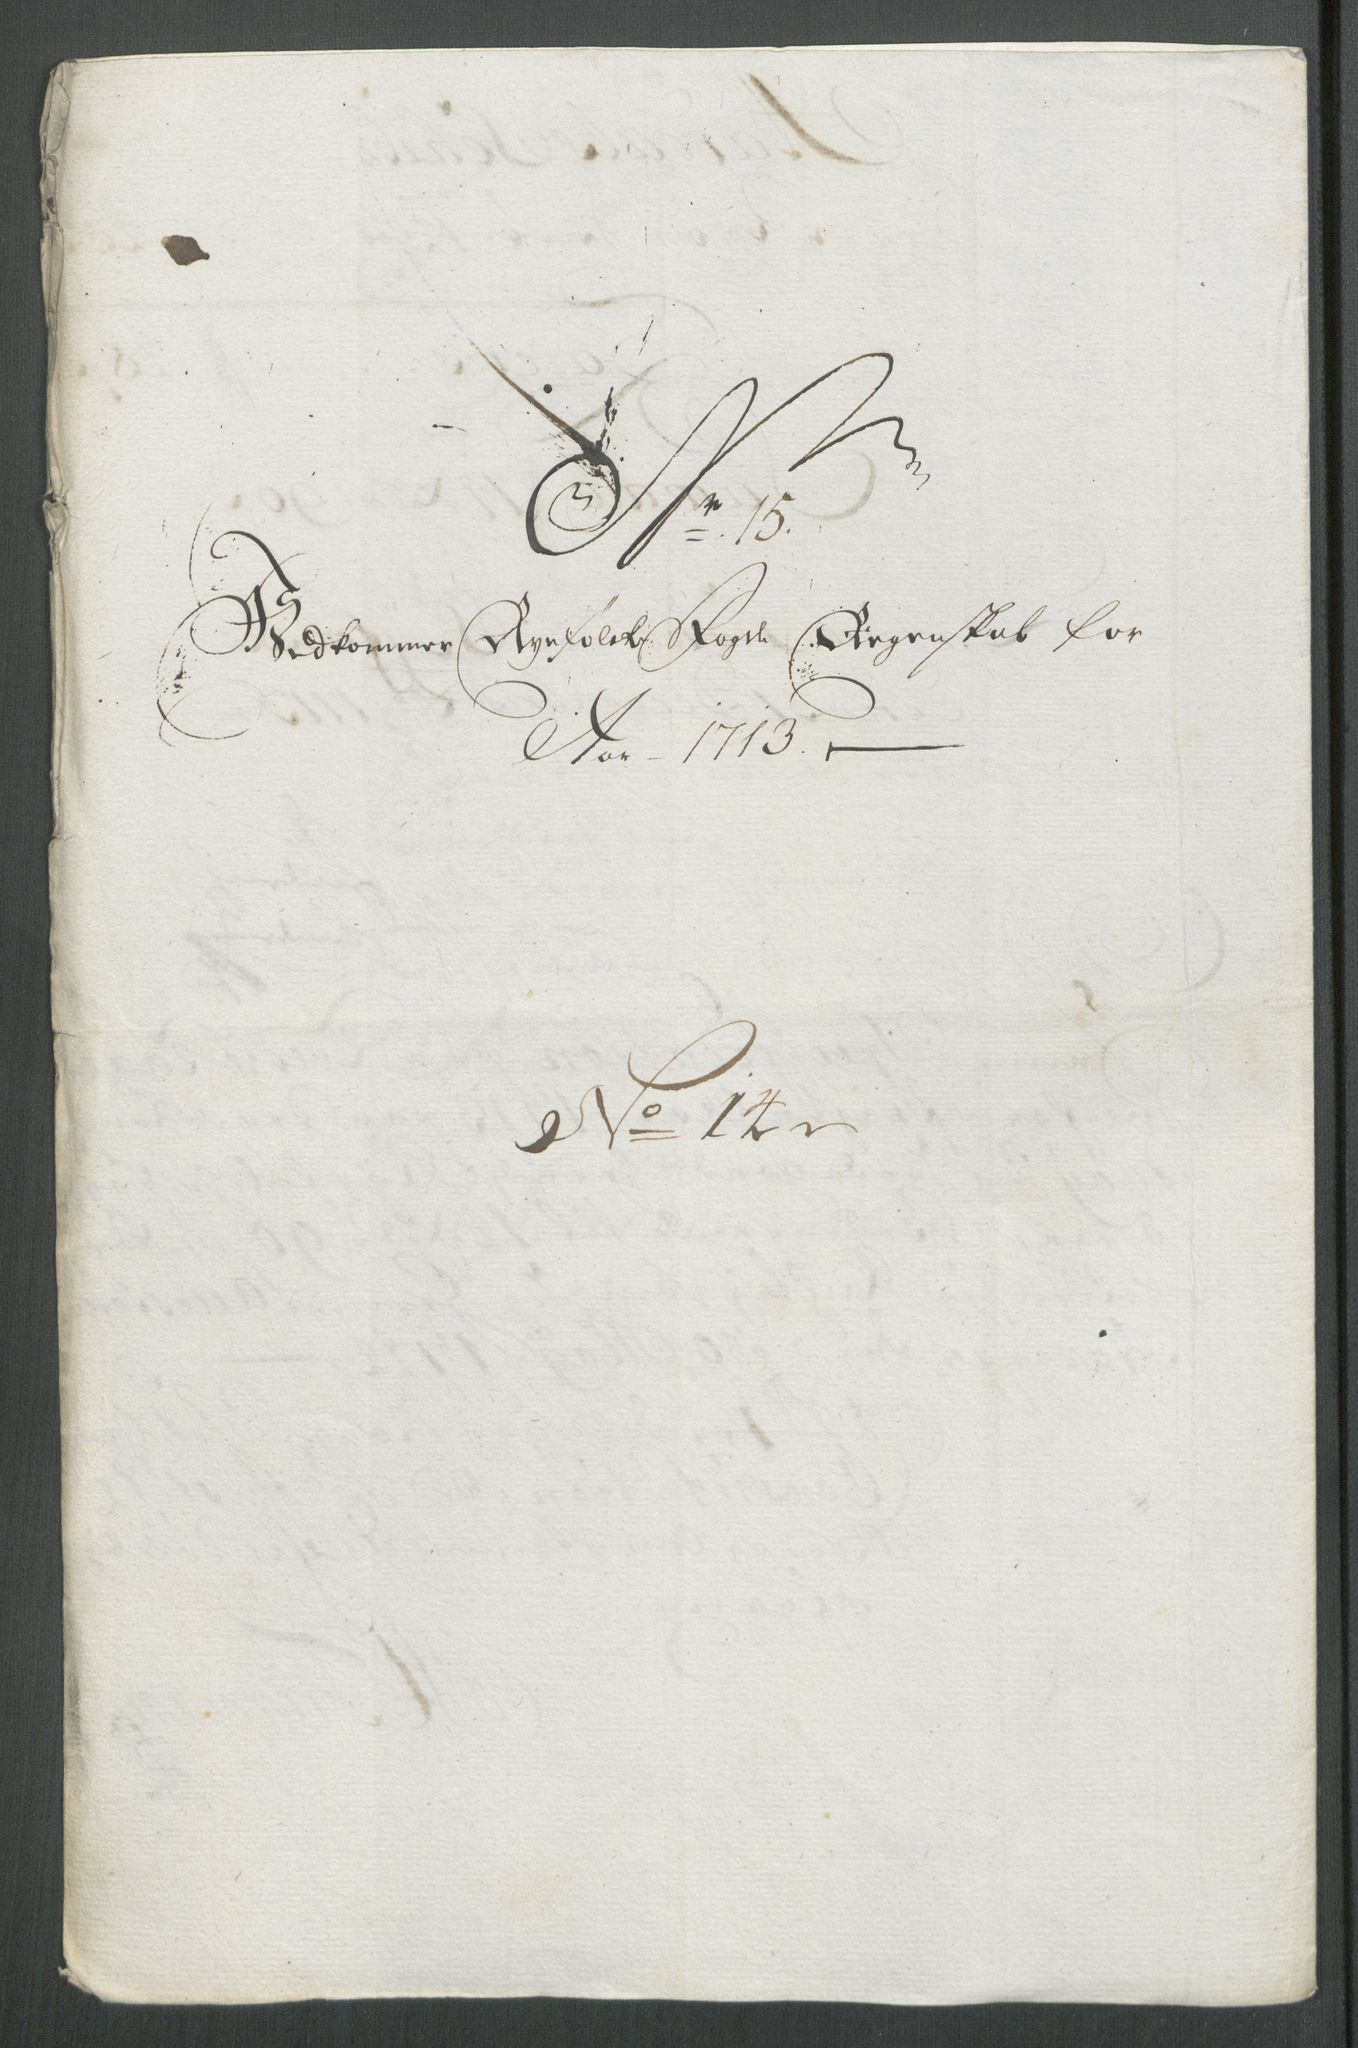 Nr. 15.
Vedkommer Ryefølche Fogde Regenskab for
Aar 1713.
No 14